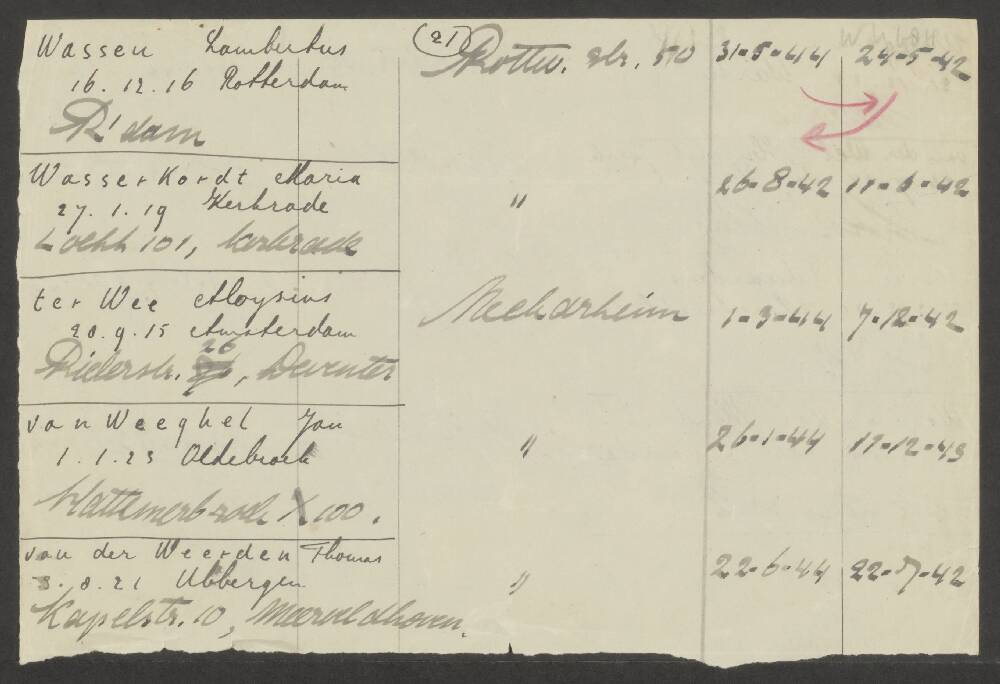 Wassen Lambertus (21) Rottw. str. 50 31-5-44 24-5-42
16.12.16 Rotterdam
R'dam
Wasserkordt Maria " 26-8-42 11-6-42
27.1.19 Kerkrade
101, Kerkrade
ter Wee Aloysius Neckarheim 1-3-44 7-12-42
20.9.15 Amsterdam
26
str. , Deventer
van Weeghel Jan " 26-1-44 17-12-43
1.1.23 Oldebroek
Hattemerbroek X 100.
van der Weerden Thomas " 22-6-44 22-7-42
8.21 Ubbergen
Kapelstr. 10, Meerveldhoven.